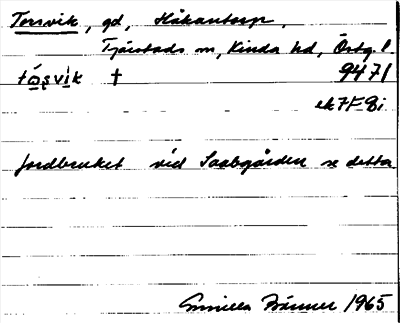 Torsvik, gd, Håkantorp,
Tjärstads sn, Kinda hd, Östg. l.
tåsvik † 9471
ek 7F 8i
Jordbruket vid Saabgården se detta
Gunilla Bränner 1965